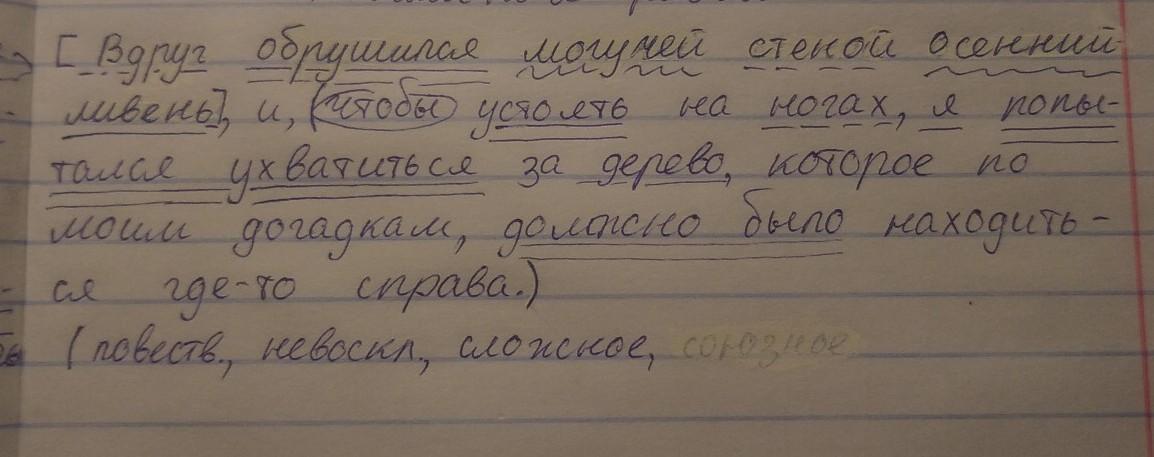 [Вдруг обрушился могучей стеной осенний
ливень], и, (чтобы устоять на ногах, я попы-
тался ухватиться за дерево, которое по
моим догадкам, должно было находить-
ся где-то справа.)
(повеств., невоскл., сложное, союзное